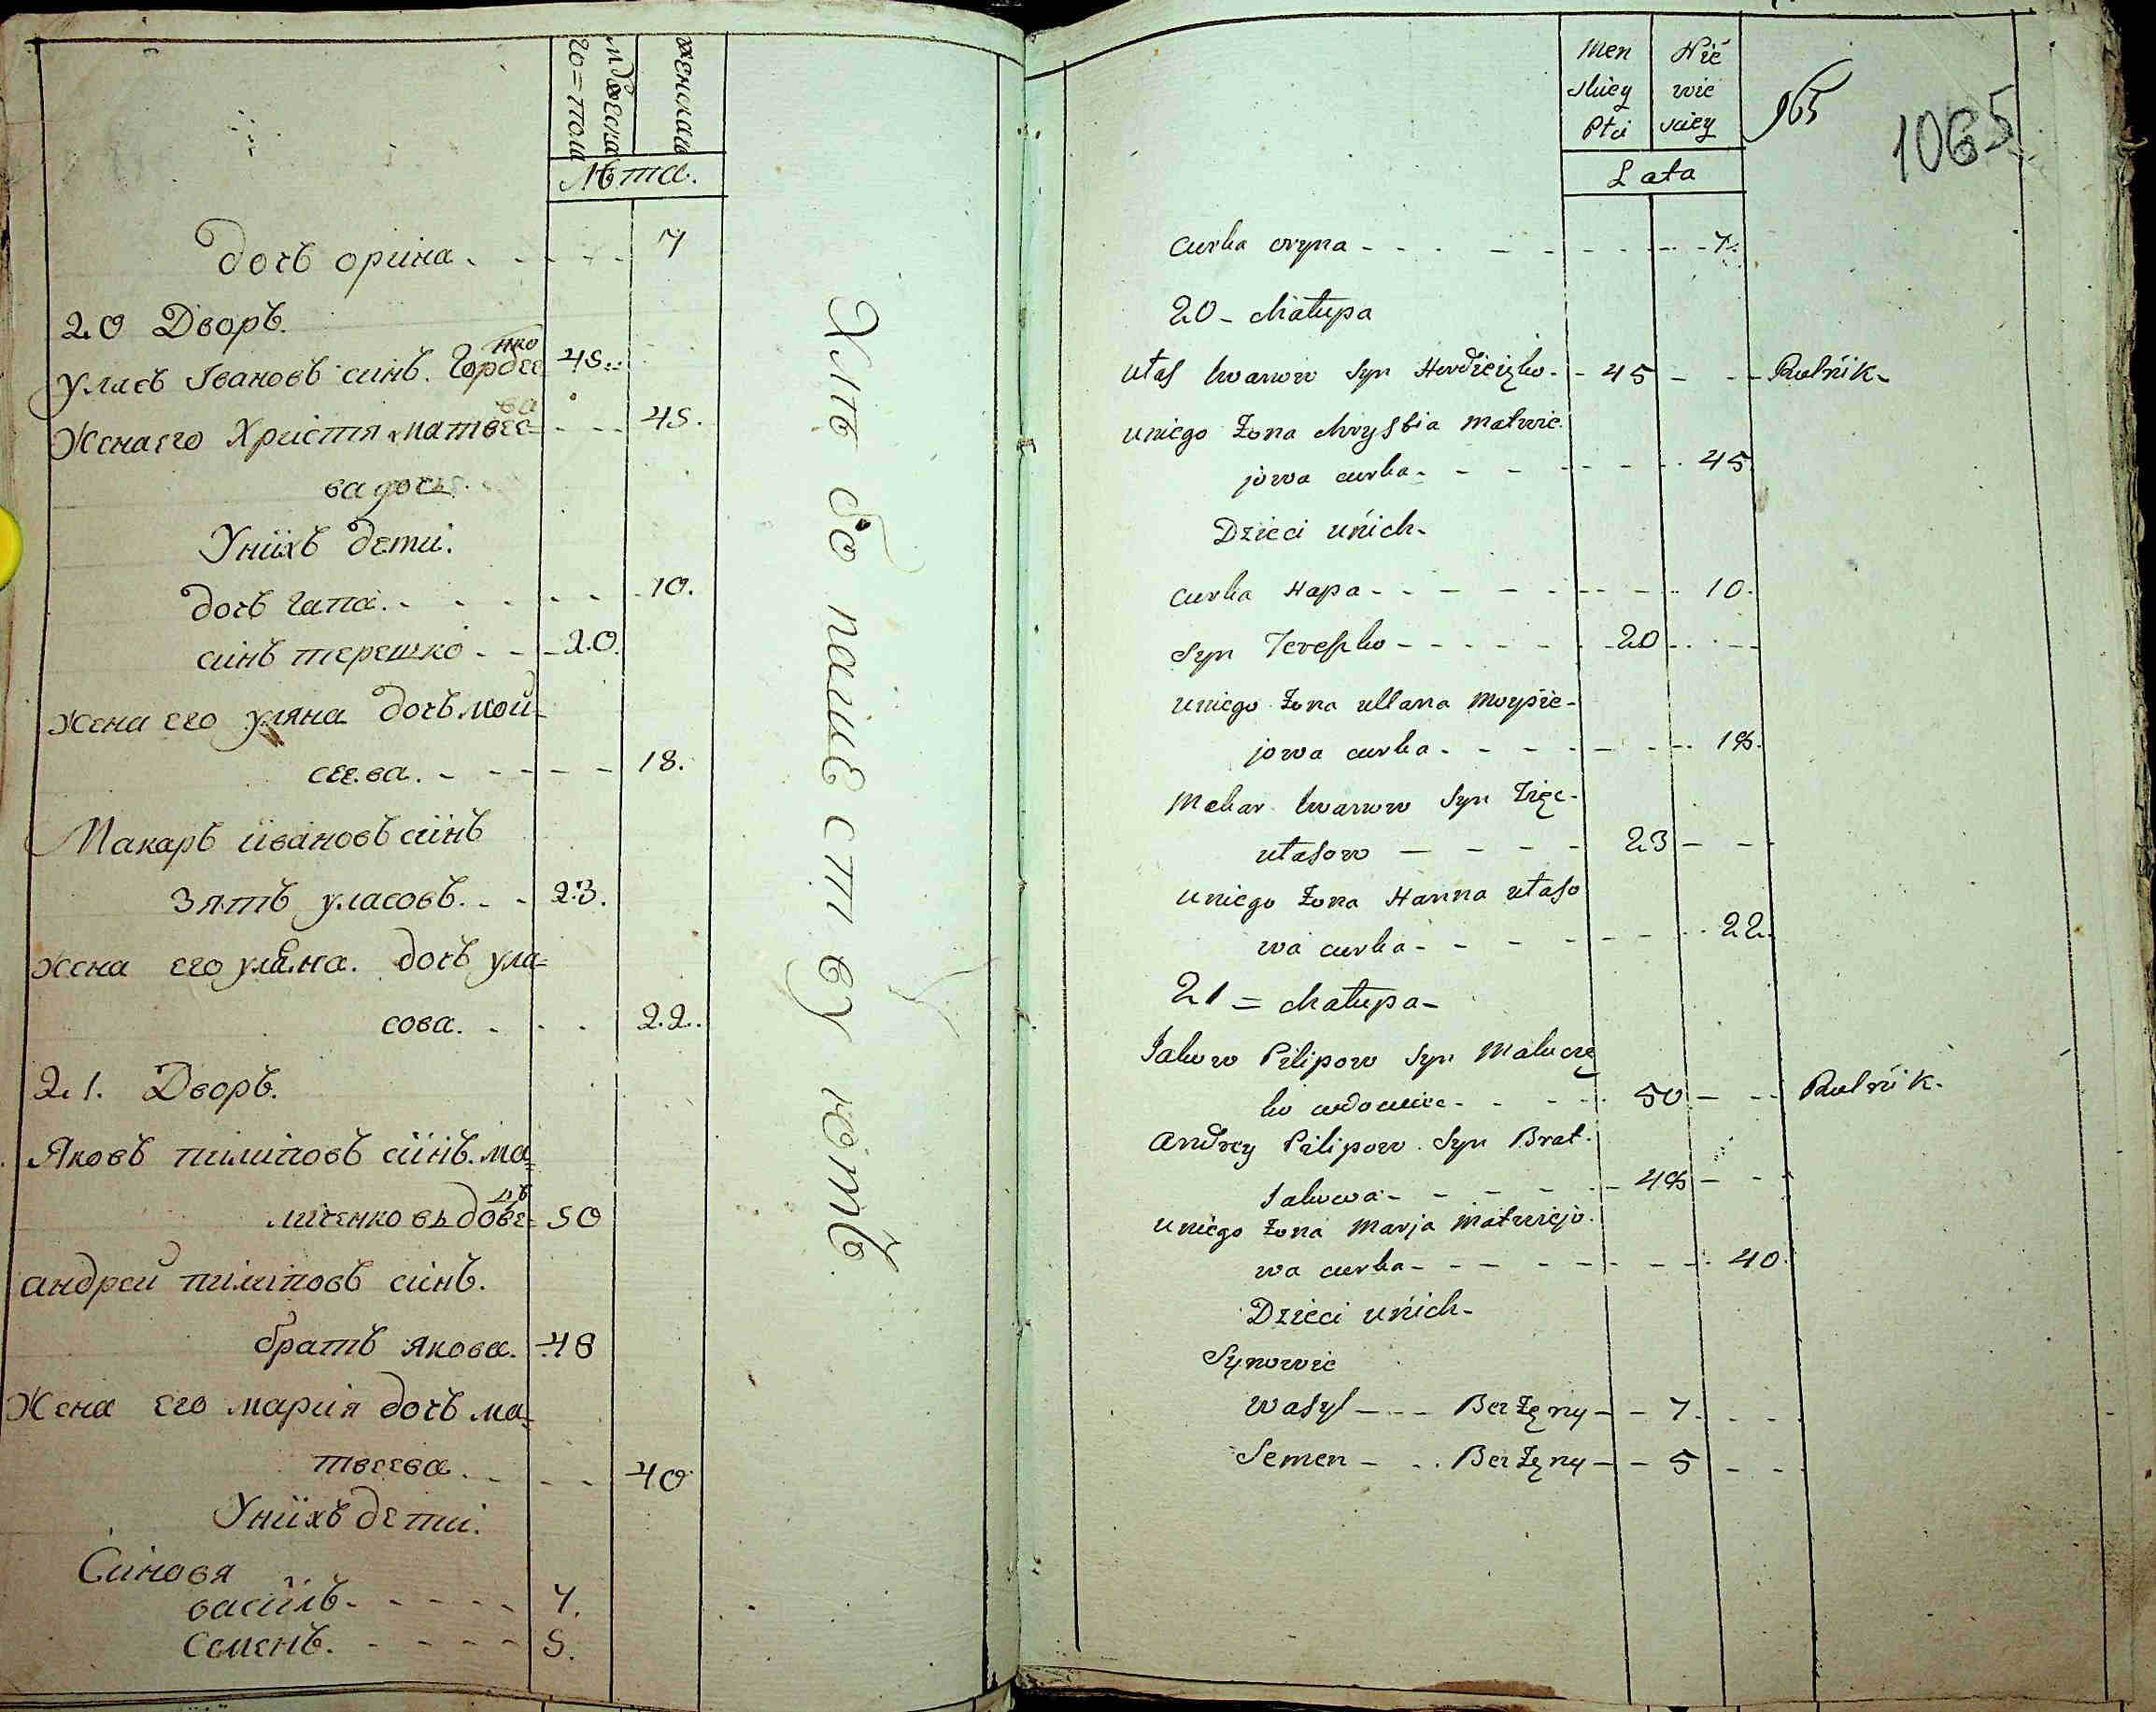 мужеска
го=пола
женскаго
Лѣта.
дочъ орина. - - - - 7
20 Дворъ.
нко
уласъ Івановъ синъ. Гордее 45.
ва
Жена его Христя матвее= - - - 45.
ва дочъ.
Унiихъ дети.
дочъ гапа. - - - - - 10.
синъ терешко - - - 20.
жена его уляна дочъ мои=
сеева. - - - - - 18.
Макаръ иивановъ сиинъ
зятъ уласовъ. - - 23.
жена его уляна. дочъ ула=
сова. - - - 22.
21. Дворъ.
Яковъ пилиповъ сиинъ. ма=
личенко вьдове= 50
андреи пилиповъ синъ.
братъ якова. - 48
Жена его мария дочъ ма=
твеева. - - - 40
Унiихъ дети.
Синовя
васииль - - - - - 7.
Семенъ. - - - - - 5.
Хлѣбопашеству
Men
skiey
Płci
Nie
wie
sciey
Lata
965
1065
curka oryna - - - - - - - - 7.
20 - Chałupa
Ułas Iwanow Syn Hordieięko - - 45 - - - Rolnik -
uniego Żona Chrystia Matwie
jowa curka - - - - - - - 45
Dzieci unich -
curka Hapa - - - - - - - - 10.
Syn Tereszko - - - - - - 20 - - -
uniego Żona Ullana Moysie -
jowa curka - - - - - - - 18.
Makar Iwanow Syn Zięc -
ułasow - - - - 23 - -
uniego Żona Hanna ułaso
wa curka - - - - - - - 22.
21 = Chałupa -
Jakow Pilipow Syn Malicze
ko wdowiec - - - - 50 - - - Rolnik -
Andrey Pilipow Syn Brat -
Jakowa - - - - - - 48 - - -
uniego Żona Marja Matwiejo -
wa curka - - - - - - - - 40.
Dzieci unich -
Synowie
Wasyl - - - Bezżęny - - 7 - - -
Semen - - - Bezżęny - - 5 - - -